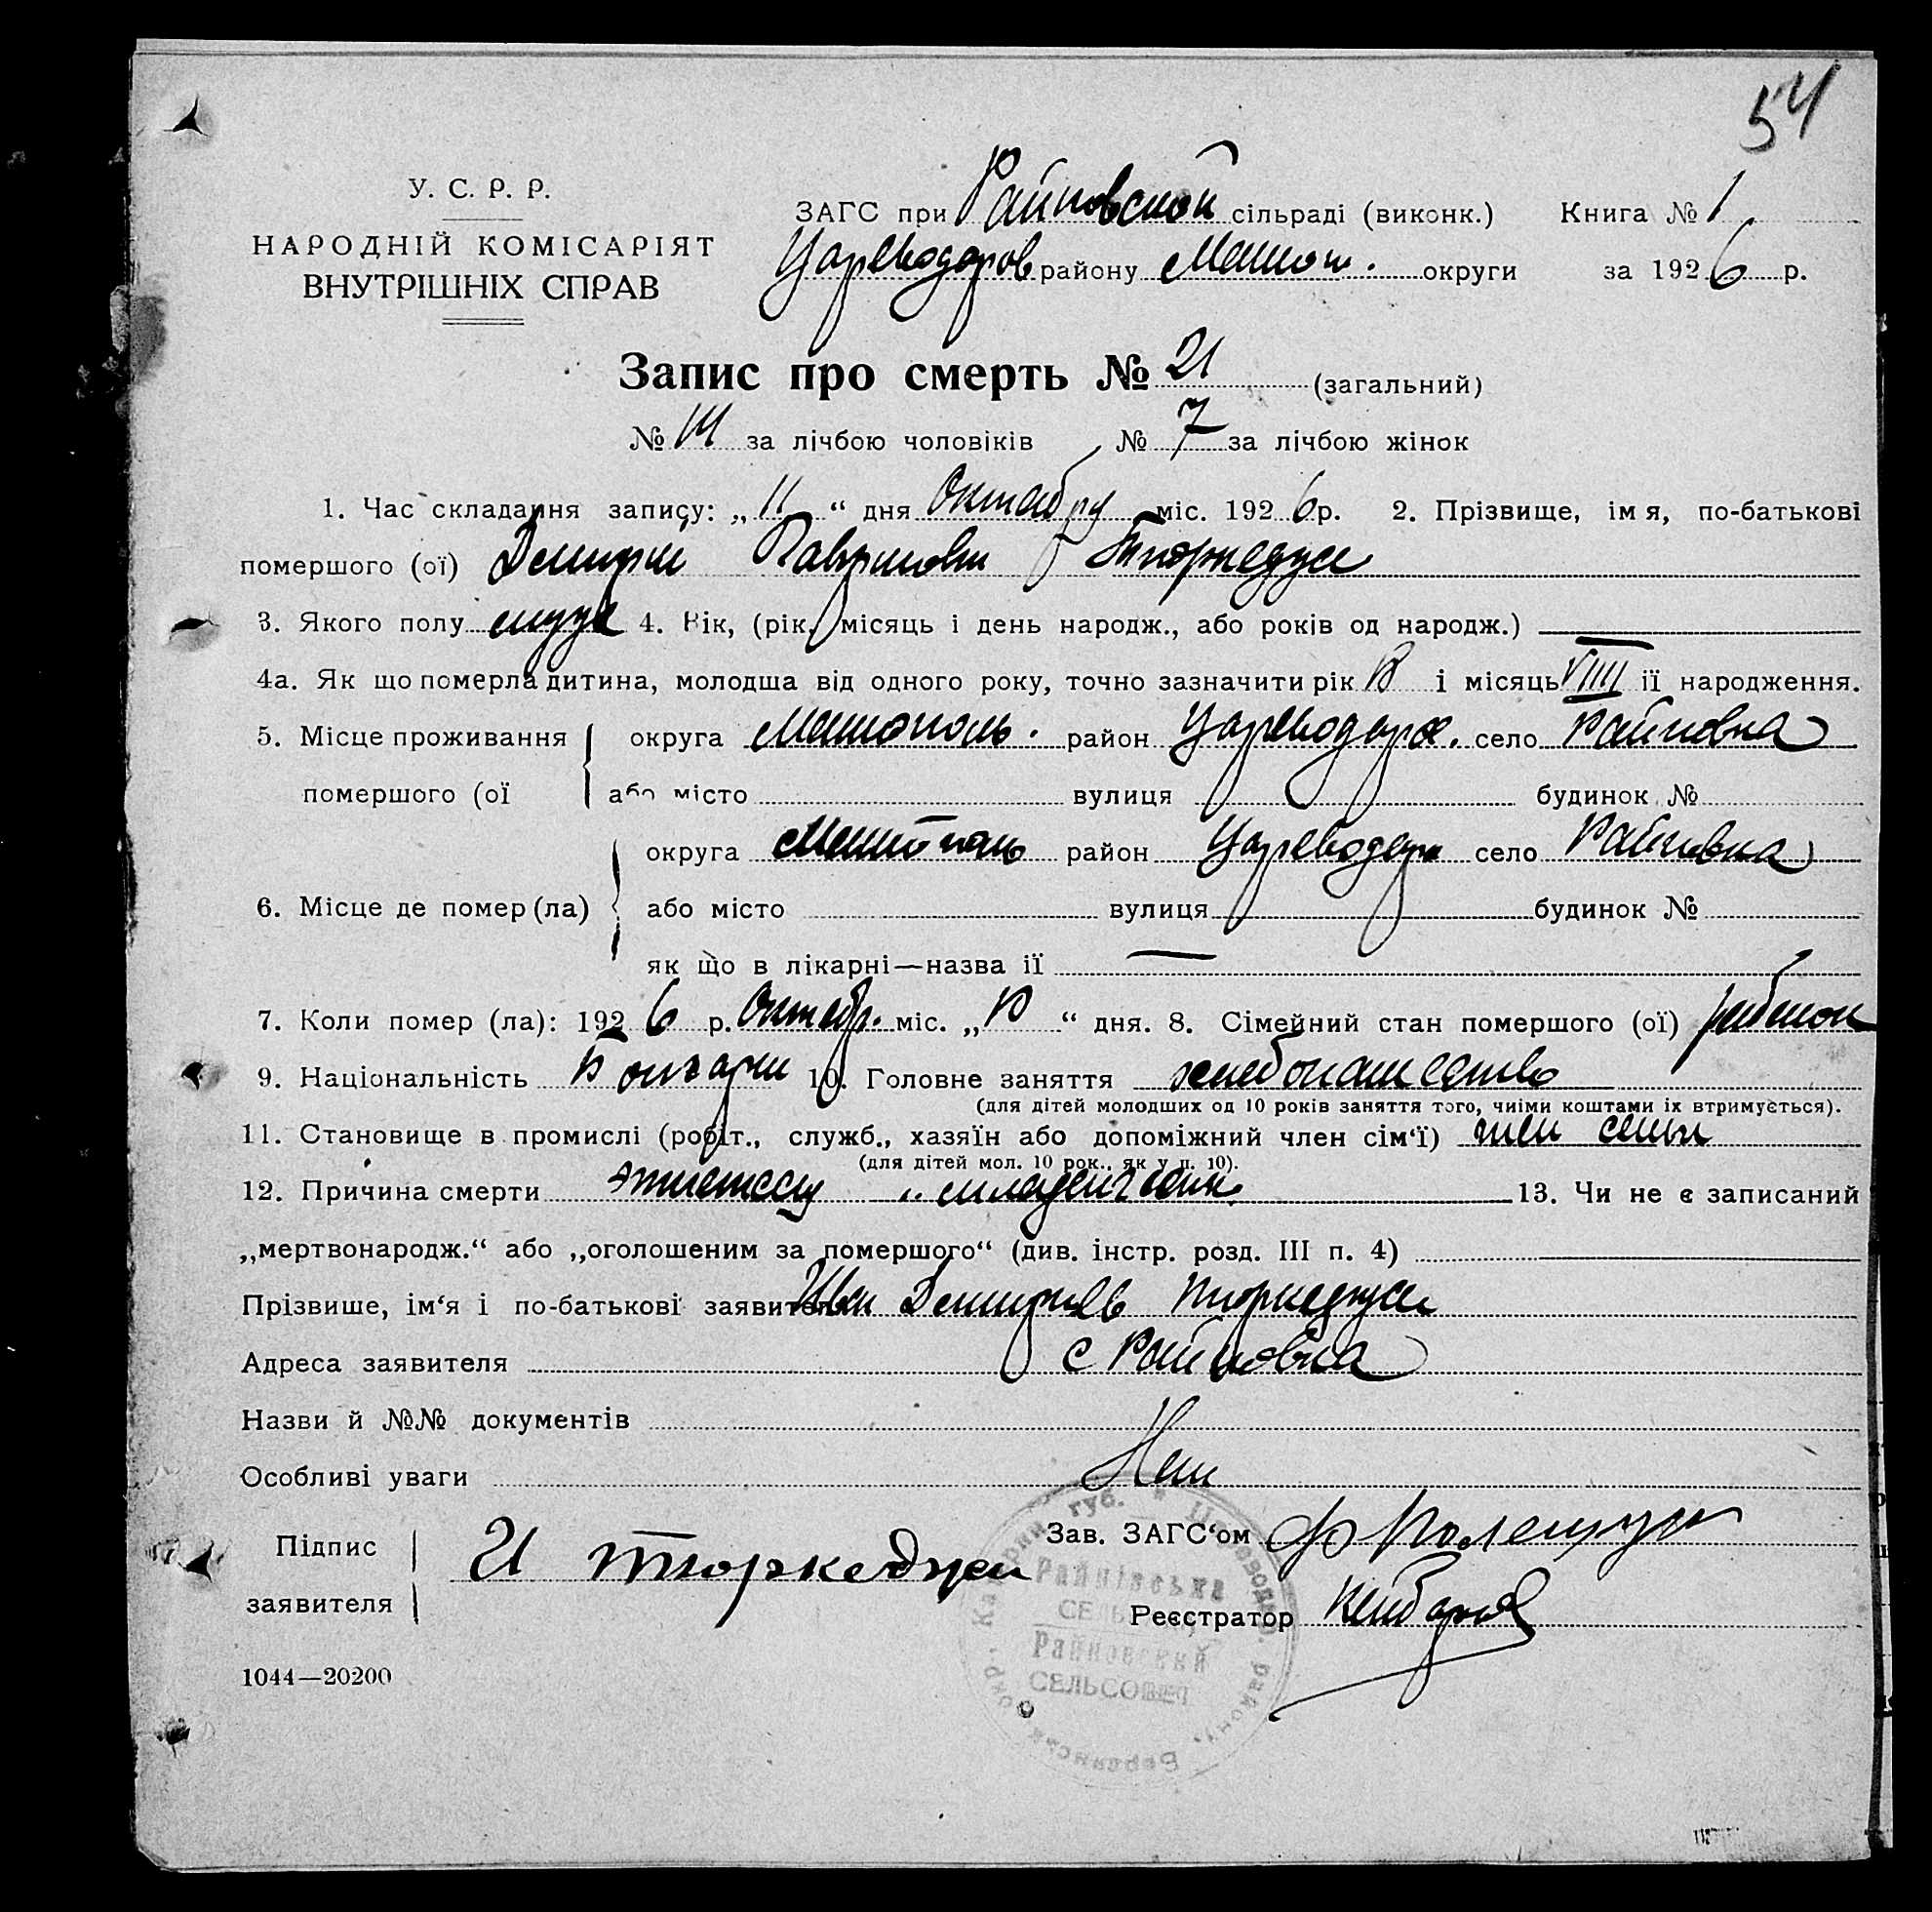 54
У. С. Р. Р.
НАРОДНІЙ КОМІСАРІЯТ
ВНУТРІШНІХ СПРАВ
ЗАГС при Райновской сільраді (виконк.) Книга № 1
Цареводаров району Мелитоп. округи за 1926 р.
Запис про смерть № 21 (загальний)
№ 14 за лічбою чоловіків № 7 за лічбою жінок
1. Час складання запису: „11“ дня Октября міс. 1926 р. 2. Прізвище, імя, по-батькові
помершого (ої) Димитрий
3. Якого полу муж 4. Вік, (рік, місяць і день народж., або років од народж.) —
4а. Як що померла дитина, молодша від одного року, точно зазначити рік і місяць VIIII її народження.
5. Місце проживання округа Мелитополь. район Цареводара. село Райновка
помершого (ої або місто вулиця будинок №
округа Мелитополь район Цареводар село Райновка
6. Місце де помер (ла) або місто вулиця будинок №
як що в лікарні—назва ії —
7. Коли помер (ла): 1926 р. Октябр. міс. „ “ дня. 8. Сімейний стан помершого (ої) ребенок
9. Національність Болгарин 10. Головне заняття хлебопашество
(для дітей молодших од 10 років заняття того, чиїми коштами їх втримується).
11. Становище в промислі (робіт., служб., хазяїн або допоміжний член сім‘ї) член семьи
(для дітей мол. 10 рок., як у п. 10).
12. Причина смерти младенческ. 13. Чи не є записаний
„мертвонародж.“ або „оголошеним за помершого“ (див. інстр. розд. III п. 4)
Прізвише, ім‘я і по-батькові заявителя Иван Димитриев Тюркеджи
Адреса заявителя с Райновка
Назви й №№ документів
Особливі уваги Нет
Підпис
заявителя И Тюркеджи
Зав. ЗАГС‘ом
Реєстратор
Райнівська
СЕЛЬ
Райновский
СЕЛЬСОВЕТ
1044—20200